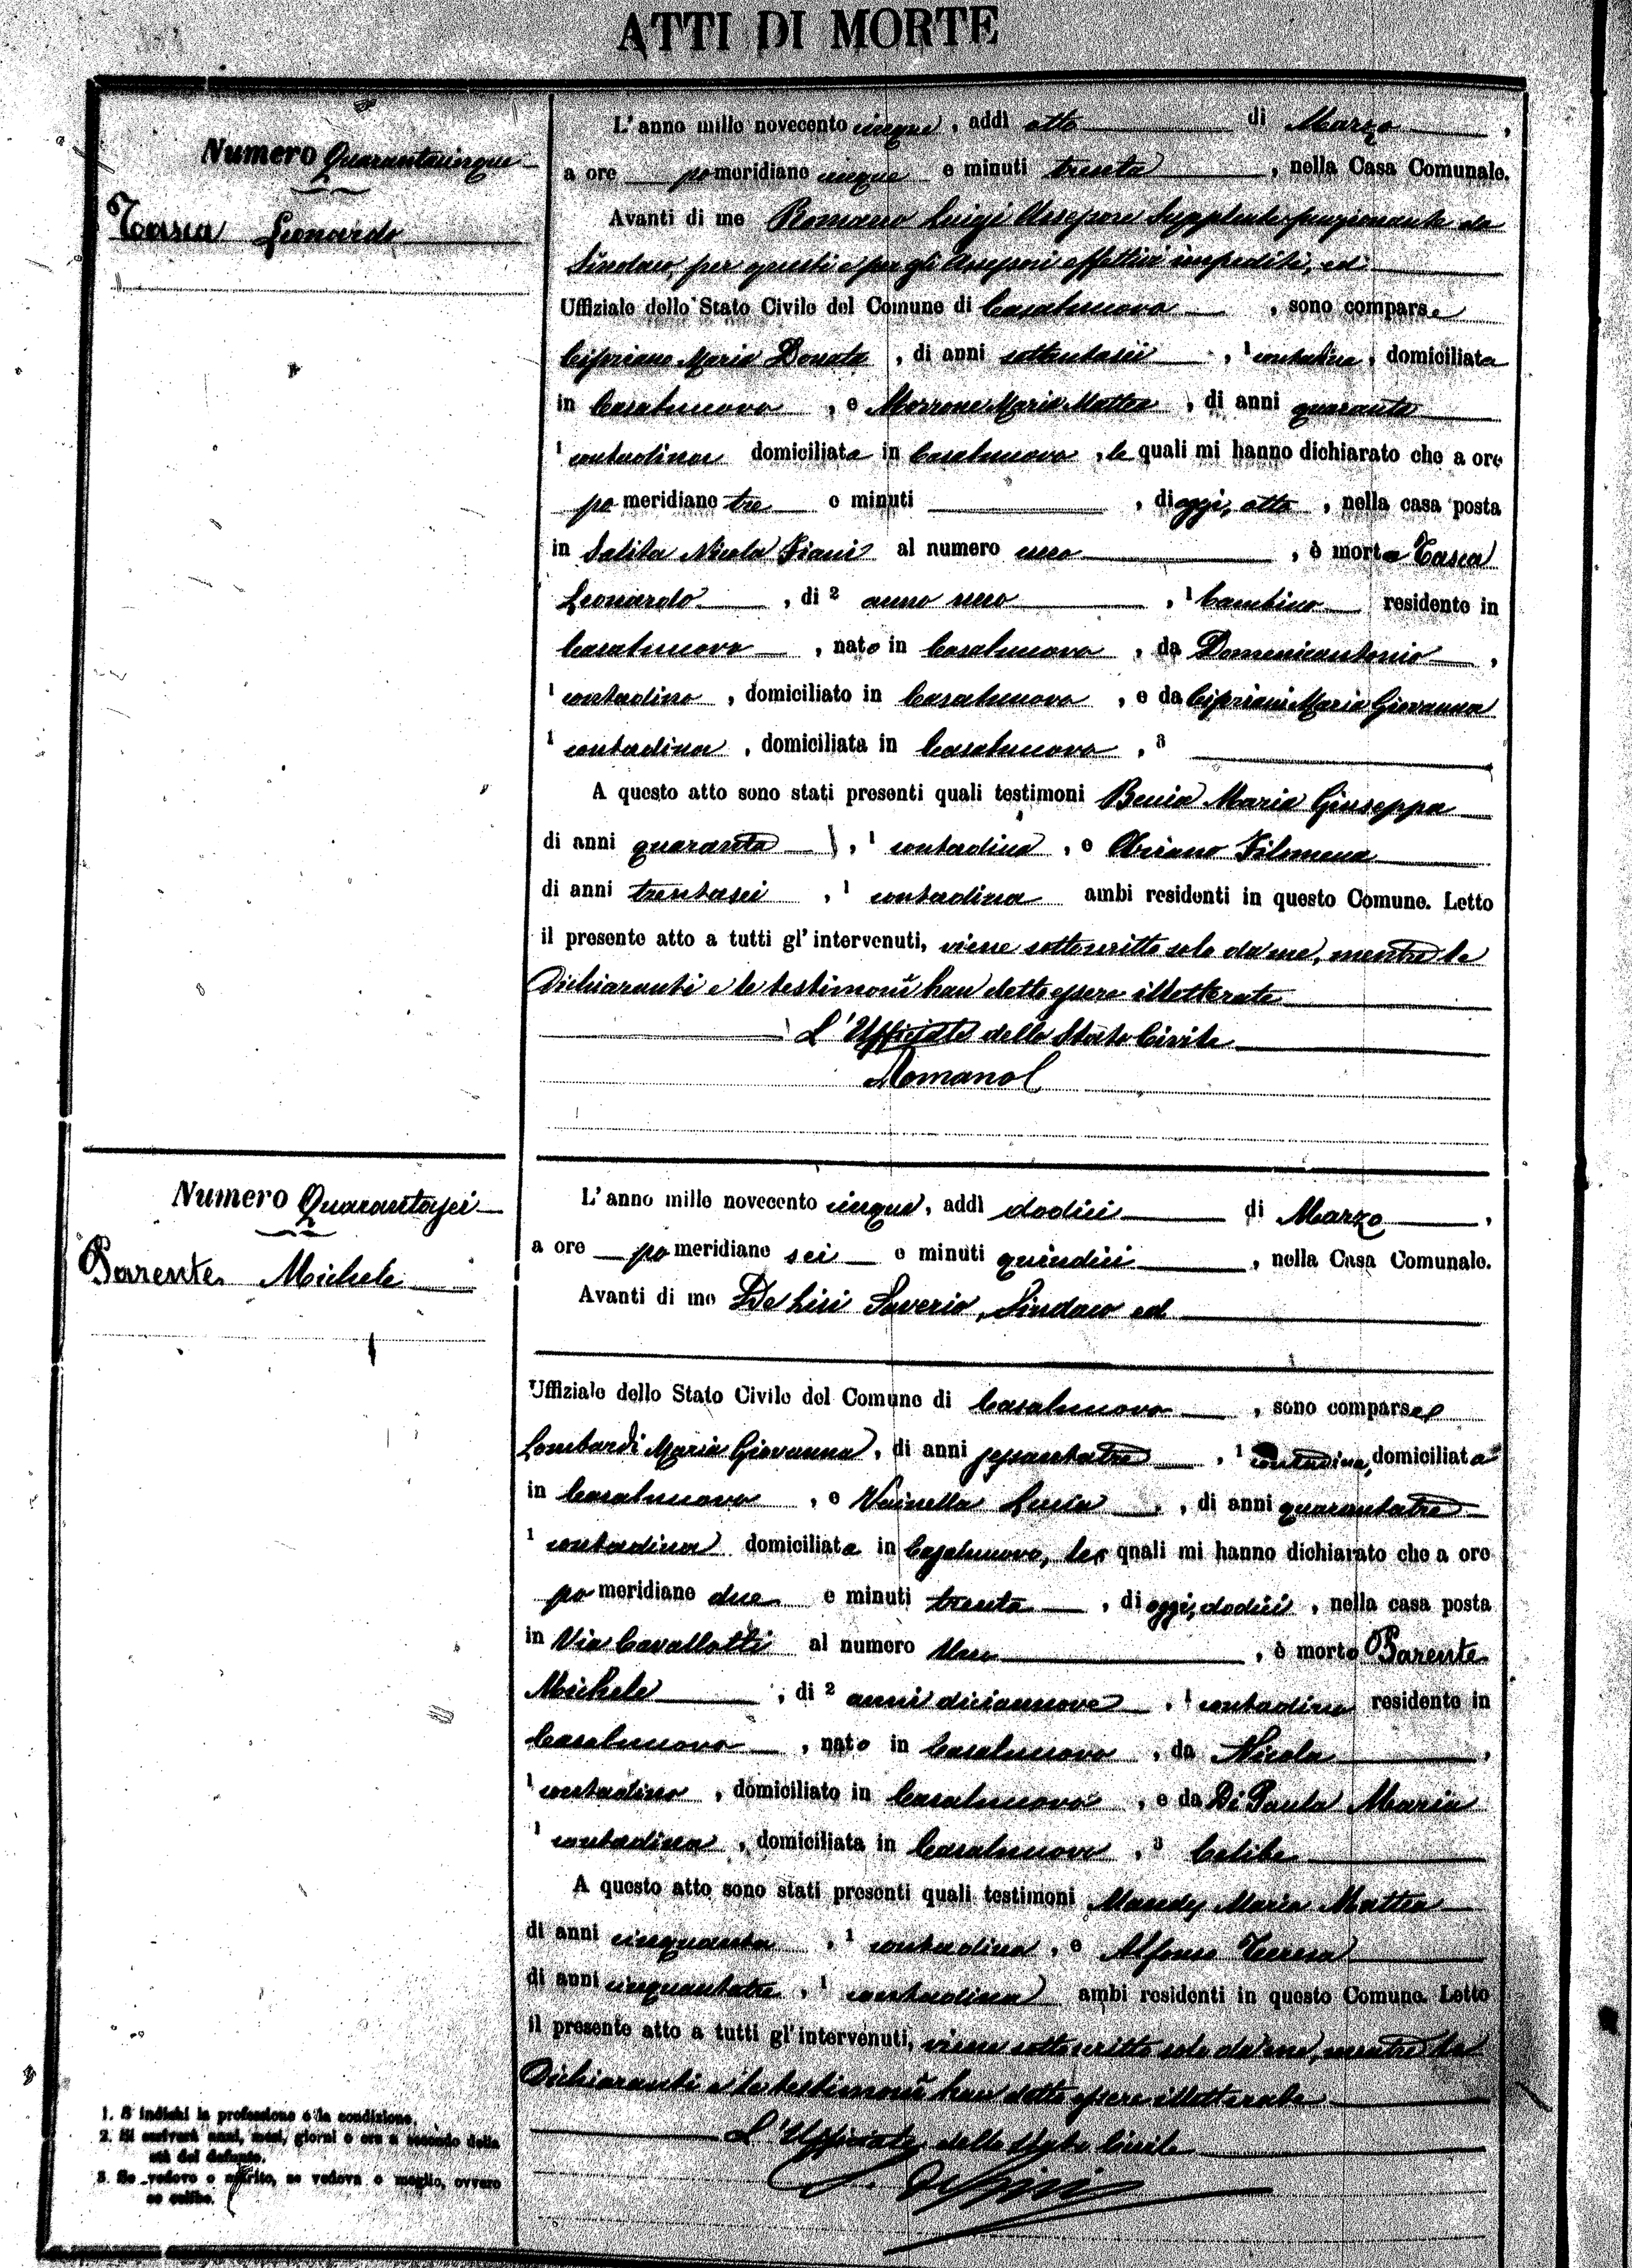 ATTI DI MORTE
Numero Quarantacinque
Tasca Leonardo
L'anno mille novecento cinque, addì otto di Marzo,
a ore pomeridiane cinque e minuti trenta, nella Casa Comunale.
Avanti di me Romano Luigi Assessore Supplente funzionante da
Sindaco, per questi e per gli Assessori effettivi impediti, ed
Uffiziale dello Stato Civile del Comune di Casalnuovo, sono comparse
Cipriano Maria Donata, di anni, 1 contadina, domiciliata
in Casalnuovo, e Morrone Maria Mattea, di anni quaranta
1 contadina domiciliata in Casalnuovo, le quali mi hanno dichiarato che a ore
pomeridiane tre e minuti, di oggi, otto, nella casa posta
in Salita Nicola Fiani al numero uno, è morto Tasca
Leonardo, di 2 anno uno, 1 bambino residente in
Casalnuovo, nato in Casalnuovo, da Domenicantonio,
1 contadino, domiciliato in Casalnuovo, e da Cipriani Maria Giovanna
1 contadina, domiciliata in Casalnuovo, 3
A questo atto sono stati presenti quali testimoni Maria Giuseppa
di anni quaranta, 1 contadina, e Filomena
di anni trentasei, 1 contadina ambi residenti in questo Comune. Letto
il presente atto a tutti gl'intervenuti, viene sottoscritto solo da me, mentre le
dichiaranti e le testimoni han detto essere illetterate
L'Ufficiale dello Stato Civile
Romano L
Numero Quarantasei
Parente Michele
L'anno mille novecento cinque, addì dodici di Marzo,
a ore pomeridiane sei e minuti quindici, nella Casa Comunale.
Avanti di me De Lisi Saverio, Sindaco ed
Uffiziale dello Stato Civile del Comune di Casalnuovo, sono comparse
Lombardi Maria Giovanna, di anni sessantatre, 1 contadina, domiciliata
in Casalnuovo, e Lucia, di anni quarantatre
1 contadina domiciliata in Casalnuovo, le quali mi hanno dichiarato che a ore
pomeridiane due e minuti trenta, di oggi, dodici, nella casa posta
in Via Cavallotti al numero Uno, è morto Parente
Michele, di 2 anni diciannove, 1 contadino residente in
Casalnuovo, nato in Casalnuovo, da Nicola,
1 contadino, domiciliato in Casalnuovo, e da Di Paola Maria
1 contadina, domiciliata in Casalnuovo, 3 Celibe
A questo atto sono stati presenti quali testimoni Maria Mattea
di anni cinquanta, 1 contadina, e Alfonso Teresa
di anni cinquantatre, 1 contadina ambi residenti in questo Comune. Letto
il presente atto a tutti gl'intervenuti, viene sottoscritto solo da me, mentre le
dichiaranti e le testimoni han detto essere illetterate
L'Ufficiale dello Stato Civile
1. Si indichi la professione o la condizione.
2. Si scriverà anni, mesi, giorni o ore a seconda della
età del defunto.
3. Se vedovo o marito, se vedova o moglie, ovvero
se celibe.